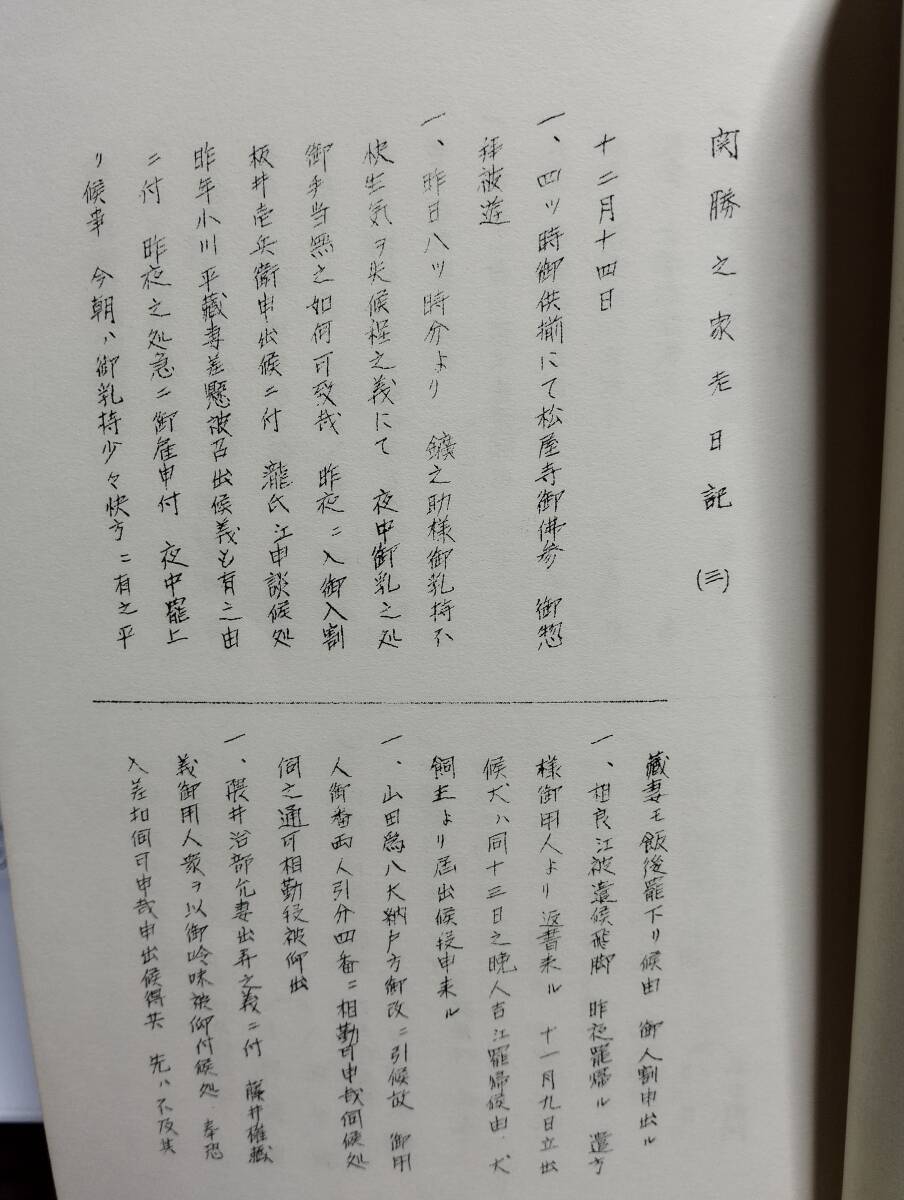 関勝之家老日記 (三)
十二月十四日
一、四ツ時御供揃にて松屋寺御佛参 御惣
拝被遊
一、昨日八ツ時分より 鑛之助様御乳持不
快生気ヲ失候程之義にて 夜中御乳之処
御手当無之如何可致哉 昨夜ニ入御入割
板井壱兵衛申出候ニ付 瀧氏江申談候処
昨年小川平藏妻差懸被召出候義も有之由
ニ付 昨夜之処急ニ御雇申付 夜中罷上
リ候事 今朝ハ御乳持少々快方ニ有之平
藏妻モ飯後罷下リ候由 御入割申出ル
一、相良江被遣候飛脚 昨夜罷帰ル 遣方
様御用人より返書来ル 十一月九日立出
候犬ハ同十三日之晩人吉江罷帰候由 犬
飼主より届出候段申来ル
一、山田爲八大納戸方御改ニ引候故 御用
人御番両人引分四番ニ相勤可申哉伺候処
伺之通可相勤段被仰出
一、隈井治部允妻出弄之義ニ付 藤井権藏
義御用人衆ヲ以御吟味被仰付候処 奉恐
入差扣伺可申哉申出候得共 先ハ不及其